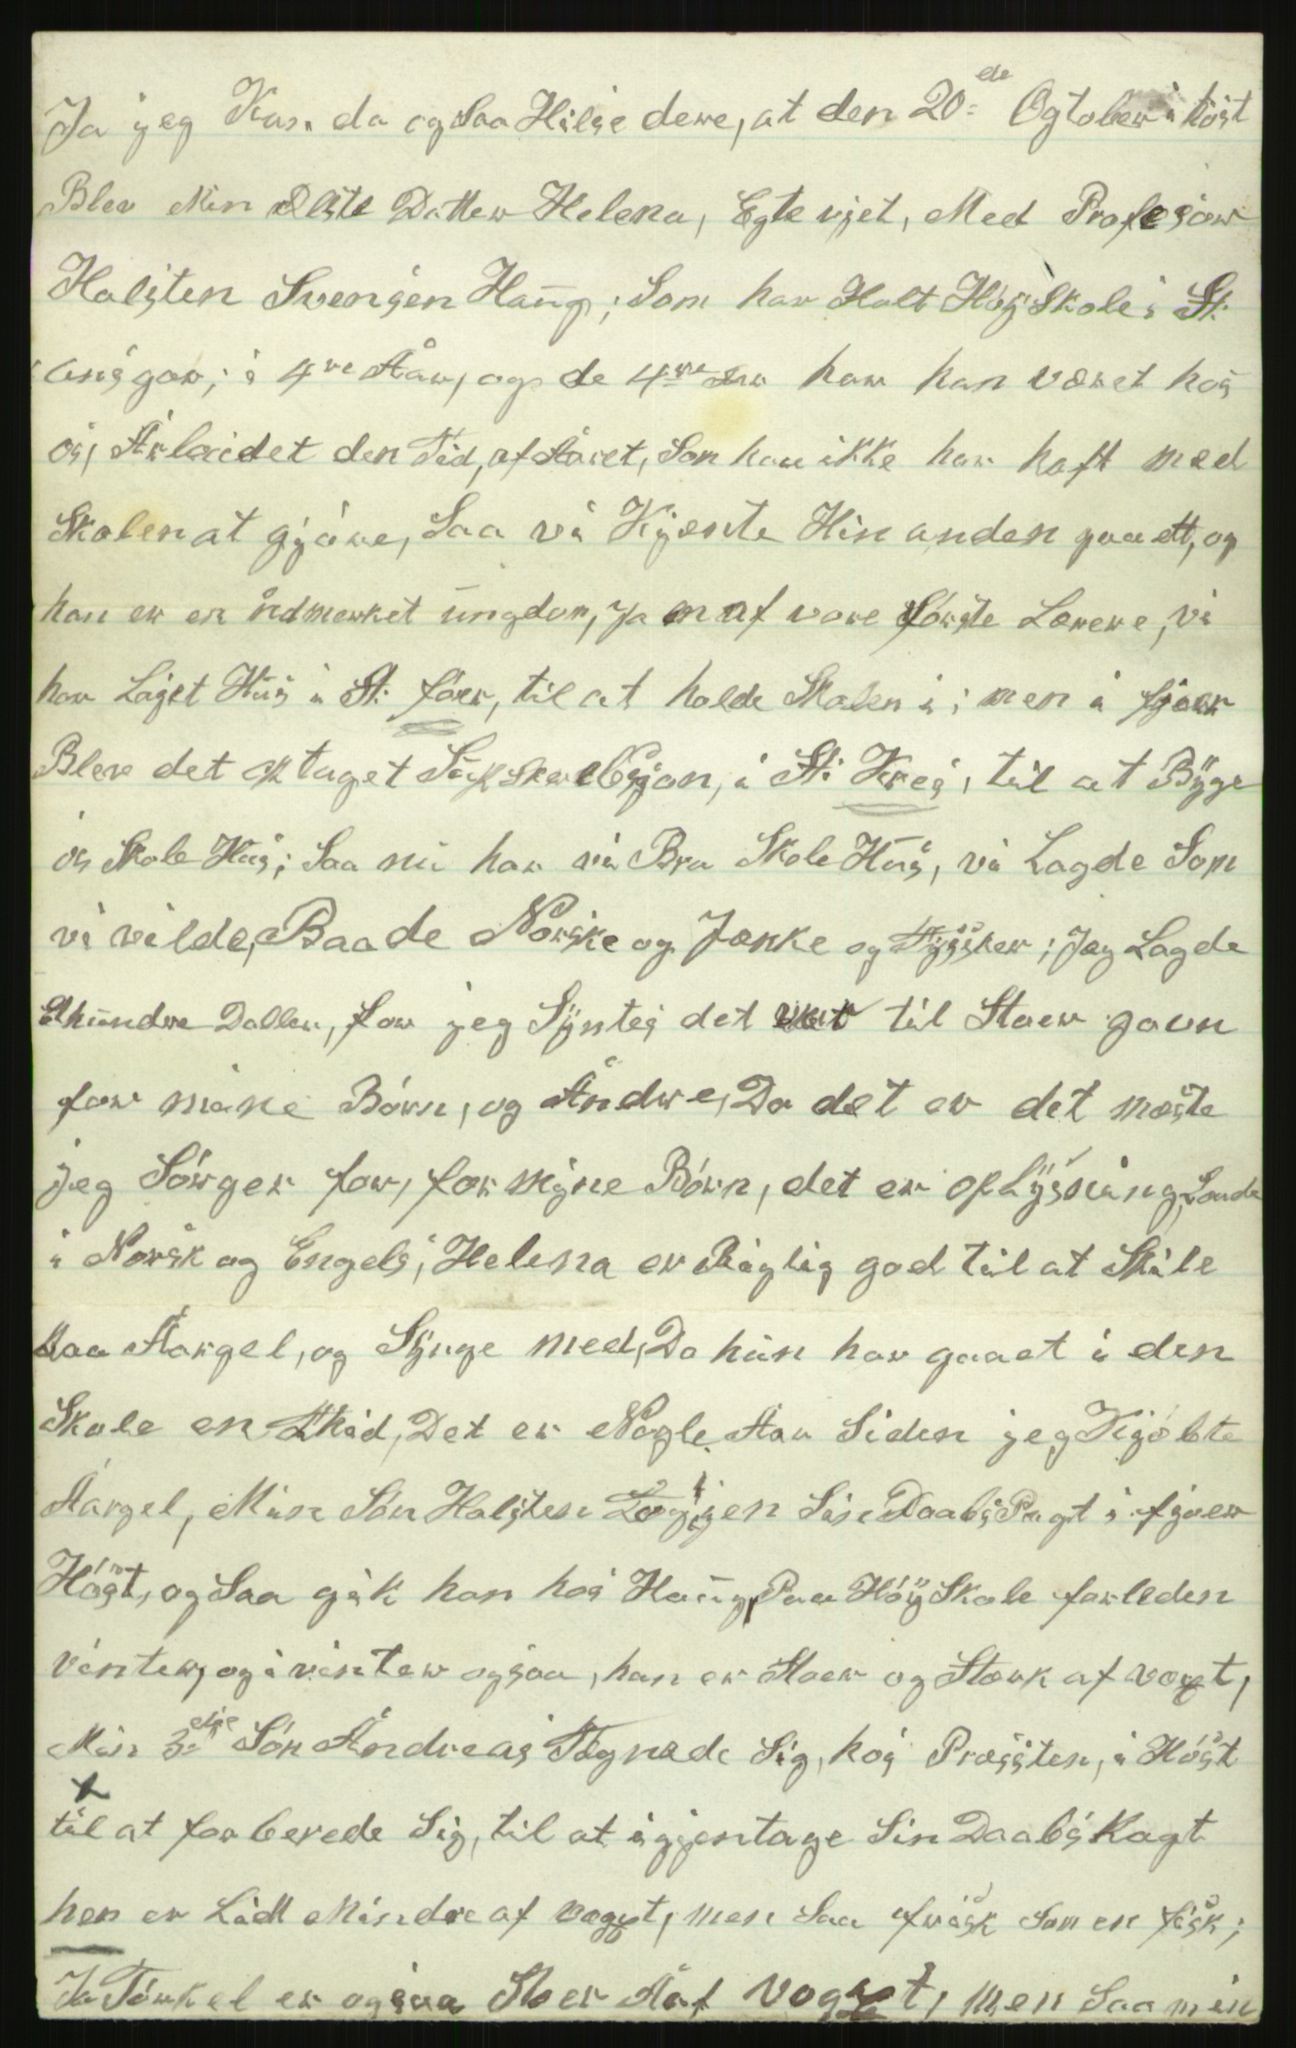 Ja jeg Kan da og Saa Hilse dere, at den 20de Ogtober i höst
Blev Min Elste Datter Helena, Egte vjet, Med Profesjor
Halsten Svensen Haug; Som har Halt Høg Skole i St:
Ansgar, i 4re Åar, og de 4re Aar har han været hos
ós, Arbeidet den Tid, af Aaret, Som han ikke har haft med
Skolen at gjóre, Saa vi Kjente Hin anden godt, og
han er en údmerket ungdom, Ja en af vore fórste Lærere, vi
har Lejet Hús i St: fóer, til at holde Skolen i; men i fjoer
Blev det optaget Supskrebsjon, i St: Kres, til at Byge
ós Skole Hús; Saa nu har vi Bra Skole Hús, vi Lagde Som
vi vilde, Baade Norske og Jenke og Tyssker; Jeg Lagde
Ehundre Daller, for jeg Syntes det var til Stoer gavn
for mine Bórn, og Åndre, Da det er det meste
jeg Sórger for, for migne Bórn, det er oplysning, Baade
i Norsk og Engels; Helena er Rigtig god til at Spile
paa Åargel, og Synge med, Da hun har gaaet i den
Skole en Thid, Det er Nogle Aar Siden jeg Kjóbte
Aargel, Min Són Halsten Tog ijen Sin Daabs Pagt i fjoer
Hóst, og Saa gik han hos Haug, Paa Hóy Skole forleden
vinter, og i vinter ogsaa, han er Stoer og Stærk af vægt,
Min 3die Són Åndreas Tegnede Sig, hos Præssten, i Hóst
til at forberede Sig, til at igjentage Sin Daabs Pagt
han er Lidt Mindre af vægt, men Saa frisk Som en fisk;
Ja Torkel er ogsaa Stoer Aaf vægt, men Saa min